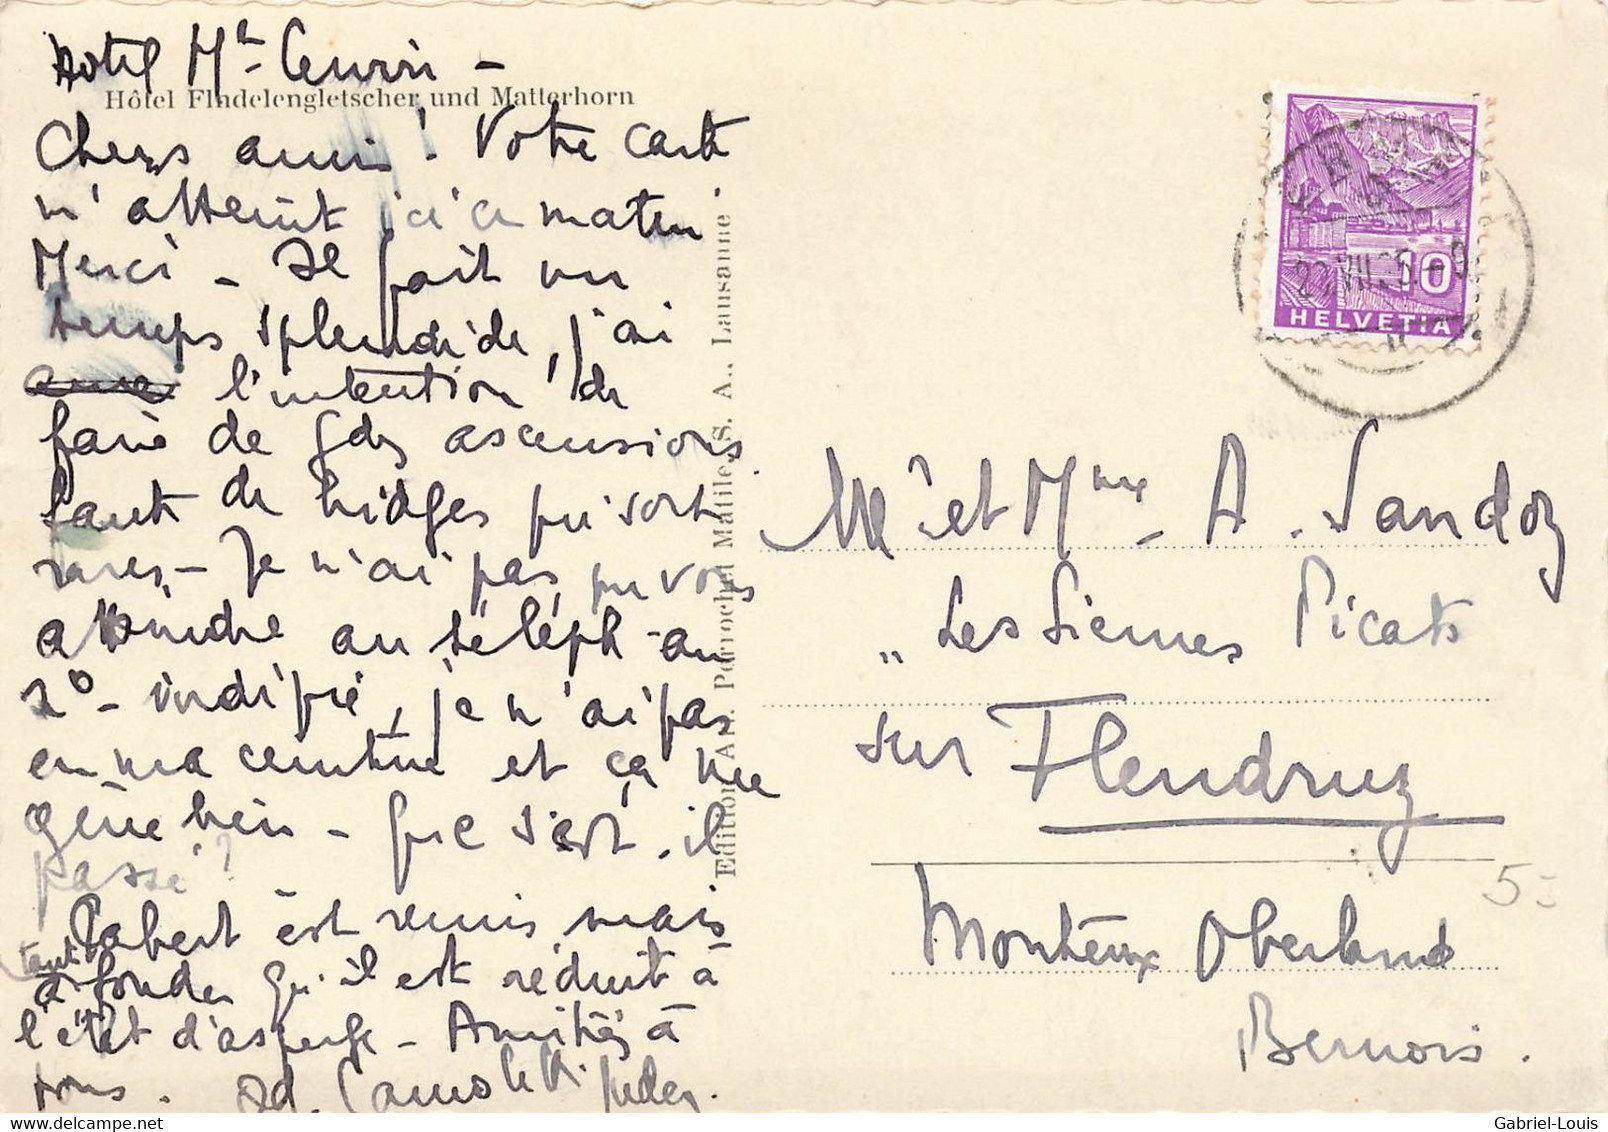 Hotel Mt Cervin -
Hôtel Findelengletscher und Matterhorn
Chers amis! Votre carte
m'atteint ici ce matin
Merci - Il fait un
temps splendide, j'ai
l'intention de
faire de gdes ascensions
faute de bridges qui sont
rares - Je n'ai pas pu vous
atteindre au téléph - au
20 - indiqué, je n'ai pas
en ma ceinture et ça me
gêne bien - que s'est-il
passé?
Robert est remis, mais
tant
à fondu qu'il est réduit à
l'état d'asperge - Amitiés à
tous.
Edition Perrochet Matile, S. A., Lausanne
HELVETIA
10
Mr et Mme A. Sandoz
"Les Siernes Picats
sur Flendruz
Monteux Oberland
Bernois.
5-
Gabriel-Louis